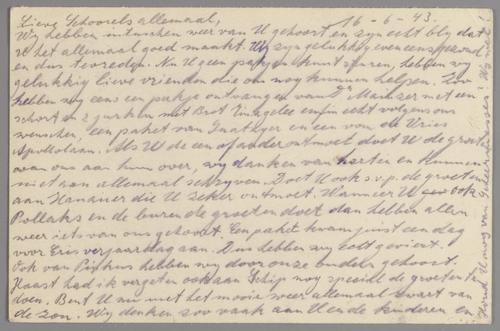 Lieve Schoorels allemaal, 16-6-43.
Wij hebben intusschen weer van U gehoort en zijn echt blij dat
U het allemaal goed maakt. Wij zijn gelukkig eveneens gezond
en dus tevreden. Nu U geen pakjes kunt sturen, hebben wij
gelukkig lieve vrienden die ons nog kunnen helpen. Zoo
hebben wij eens een pakje ontvangen van Dr. met een
schort en 2 jurken met Brot enfin echt volgens ons
wenschen, een paket van en een van de Vries
Apollolaan. Als U de een of ander ontmoet doet U de groeten
van ons aan hun over, wij danken van harten en kunnen
niet aan allemaal schrijven. Doet U ook s.v.p. de groeten
aan Hanauer die U zeker ontmoet. Wanneer U ook
Pollaks en de buren de groeten doet dan hebben allen
weer iets van ons gehoort. Een paket kwam just een dag
voor Eris verjaardag aan. Dus hebben wij echt geviert.
Ook van hebben wij door onze ouders gehoort.
Haast had ik vergeten ook aan Schip nog speciaal de groeten te
doen. Bent U nu met het mooie weer allemaal zwart van
de zon. Wij denken zoo vaak aan U en de kinderen en